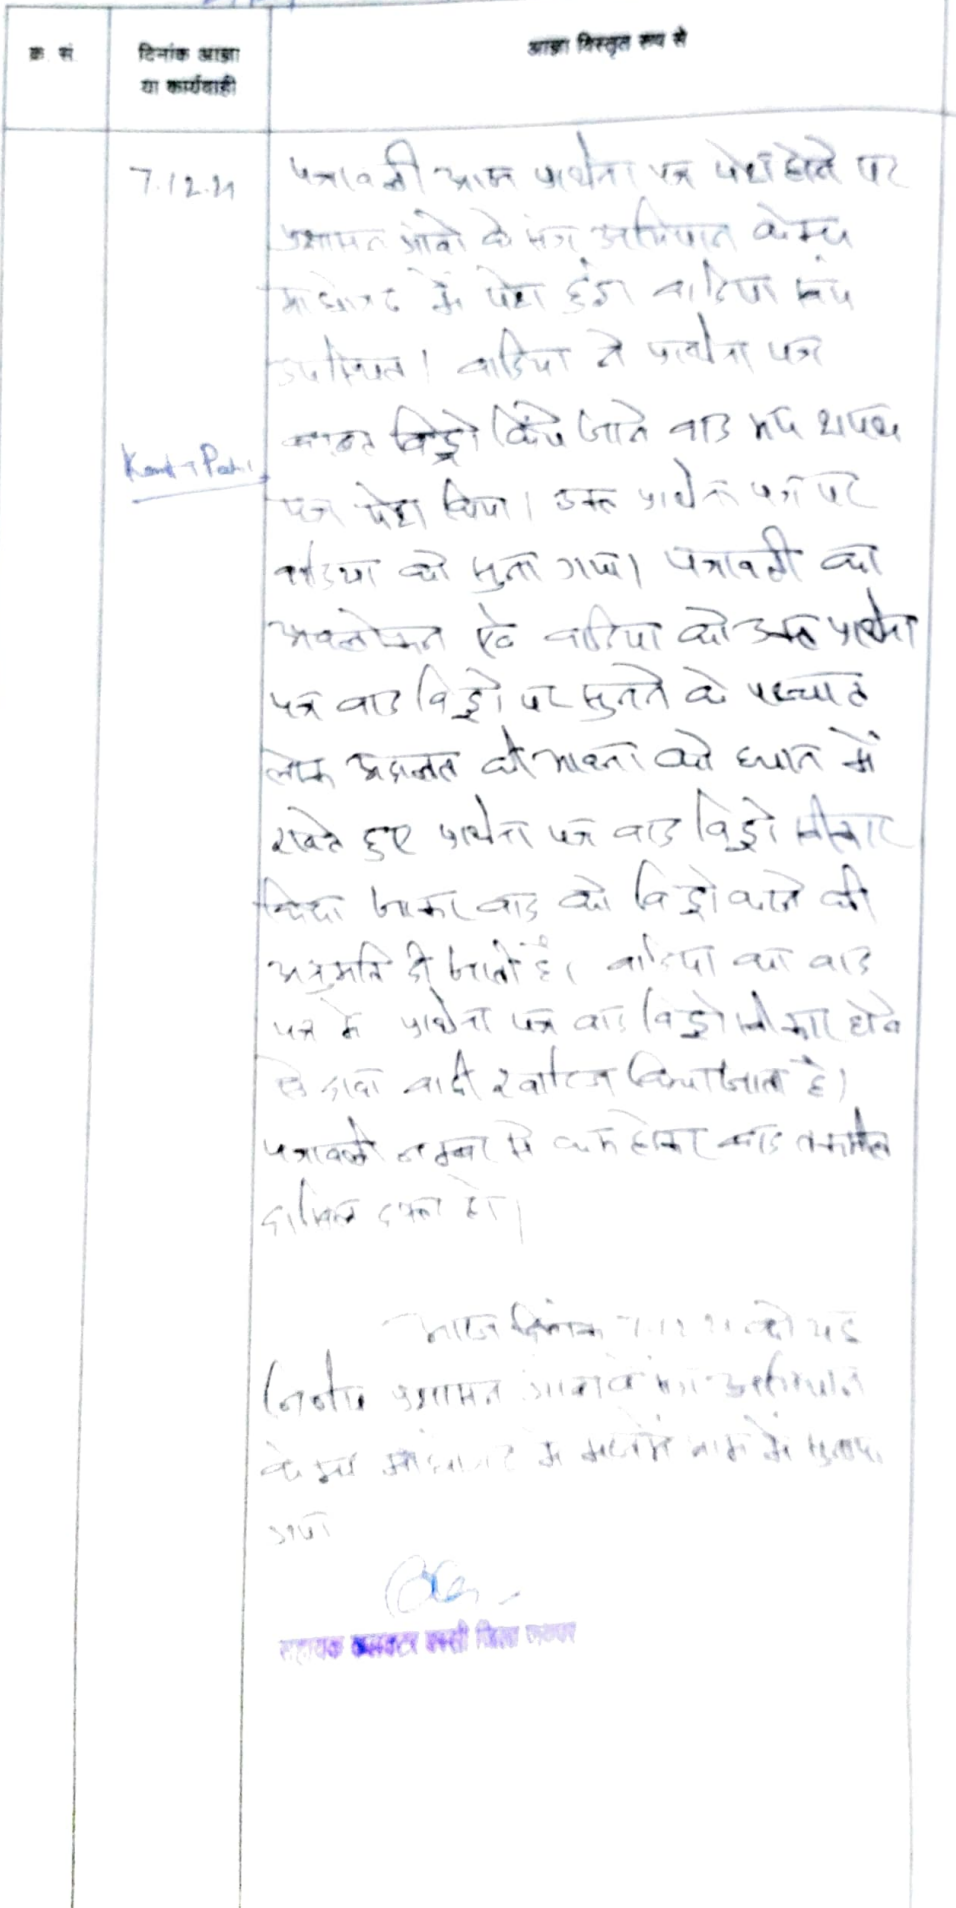 क्र. सं. दिनांक आज्ञा या कार्यवाही आज्ञा विस्तृत रूप से
7.12.21 पत्रावली आज प्रार्थना पत्र पेश होने पर
प्रशासन गांवो के संग अभियान केम्प
में पेश हुई। वादिया मय
उपस्थित। वादिया ने प्रार्थना पत्र
बाबत विड्रो किये जाने वाद मय शपथ
पत्र पेश किया। उक्त प्रार्थना पत्र पर
वादिया को सुना गया। पत्रावली का
अवलोकन एवं वादिया को उक्त प्रार्थना
पत्र वाद विड्रो पर सुनने के पश्चात
लोक अदालत की भावना को ध्यान में
रखते हुए प्रार्थना पत्र वाद विड्रो स्वीकार
किया जाकर वाद को विड्रो करने की
अनुमति दी जाती है। वादिया का वाद
पत्र मे प्रार्थना पत्र वाद विड्रो स्वीकार होने
से दावा वादी खारिज किया जाता है।
पत्रावली नम्बर से कम होकर बाद तकमील
दाखिल दफ्तर हो।
आज दिनांक 7.12.21 को यह
निर्णय प्रशासन गांवो के संग अभियान
केम्प में में सुनाया
गया
सहायक कलक्टर बस्सी जिला जयपुर